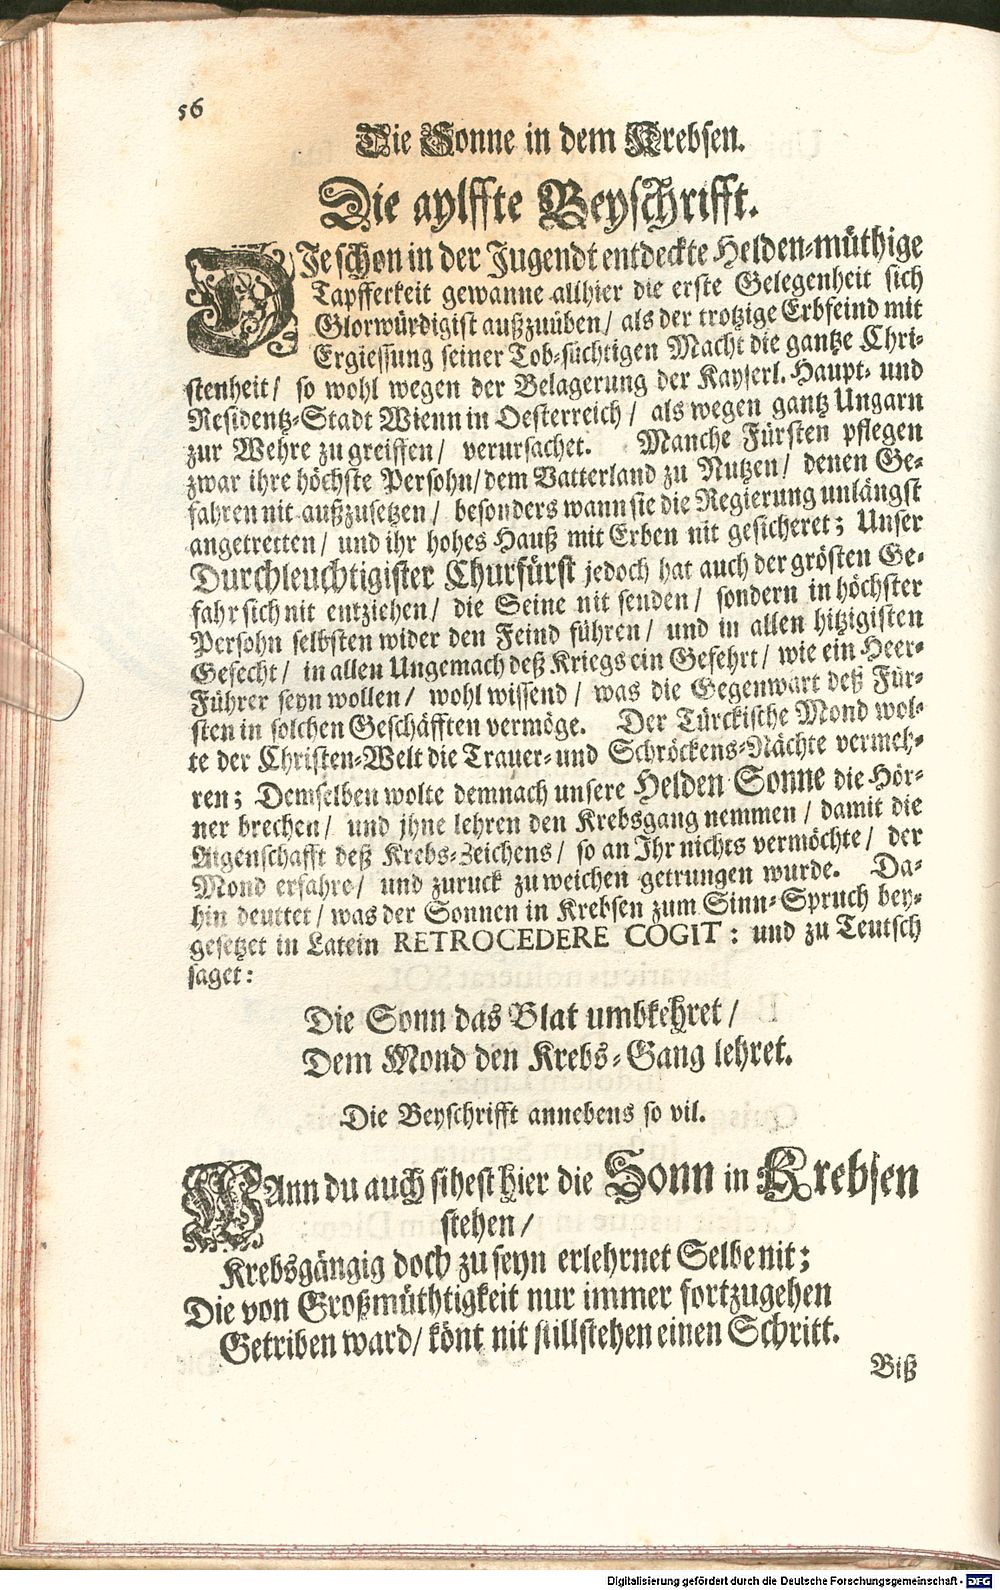 56
Die Sonne in dem Krebsen.
Die aylffte Beyschrifft.
DJe schon in der Jugendt entdeckte Helden-müthige
Tapfferkeit gewanne allhier die erste Gelegenheit sich
Glorwürdigist außzuüben/ als der trotzige Erbfeind mit
Ergiessung seiner Tob-süchtigen Macht die gantze Chri-
stenheit/ so wohl wegen der Belagerung der Kayserl. Haupt- und
Residentz-Stadt Wienn in Oesterreich/ als wegen gantz Ungarn
zur Wehre zu greiffen/ verursachet. Manche Fürsten pflegen
zwar ihre höchste Persohn/ dem Vatterland zu Nutzen/ denen Ge-
fahren nit außzusetzen/ besonders wann sie die Regierung unlängst
angetretten/ und ihr hohes Hauß mit Erben nit gesicheret; Unser
Durchleuchtigister Churfürst jedoch hat auch der grösten Ge-
fahr sich nit entziehen/ die Seine nit senden/ sondern in höchster
Persohn selbsten wider den Feind führen/ und in allen hitzigisten
Gefecht/ in allen Ungemach deß Kriegs ein Gefehrt/ wie ein Heer-
Führer seyn wollen/ wohl wissend/ was die Gegenwart deß Für-
sten in solchen Geschäfften vermöge. Der Türckische Mond wol-
te der Christen-Welt die Trauer- und Schröckens-Nächte vermeh-
ren; Demselben wolte demnach unsere Helden Sonne die Hör-
ner brechen/ und jhne lehren den Krebsgang nemmen/ damit die
Aigenschafft deß Krebs-Zeichens/ so an Jhr nichts vermöchte/ der
Mond erfahre/ und zuruck zu weichen getrungen wurde. Da-
hin deuttet/ was der Sonnen in Krebsen zum Sinn-Spruch bey-
gesetzet in Latein RETROCEDERE COGIT: und zu Teutsch
saget:
Die Sonn das Blat umbkehret/
Dem Mond den Krebs-Gang lehret.
Die Beyschrifft annebens so vil.
WAnn du auch sihest hier die Sonn in Krebsen
stehen/
Krebsgängig doch zu seyn erlehrnet Selbe nit;
Die von Großmüthtigkeit nur immer fortzugehen
Getriben ward/ könt nit stillstehen einen Schritt.
Biß
Digitalisierung gefördert durch die Deutsche Forschungsgemeinschaft - DFG